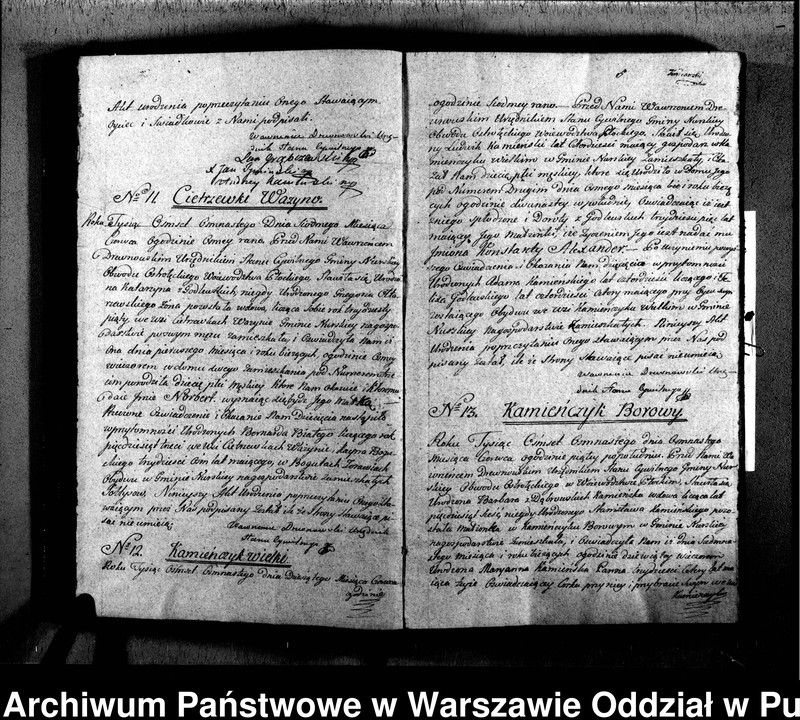 Akt urodzenia po przeczytaniu Onego Stawaiącym
Oyciec i Swiadkowie z Nami podpisali.
Wawrzeniec Drewnowski Urzę-
dnik Stanu Cywilnego
Nro 11. Cietrzewki Ważyno.
Roku Tysiąc Osmset Osmnastego Dnia Siodmego Miesiąca
Czerwca Ogodzinie Osmey rano. Przed Nami Wawrzencem
Drewnowskim Urzędnikiem Stanu Cywilnego Gminy Nurskiey
Obwodu Ostrołęckiego Woiewodztwa Płockiego, Stawiła się Urodzo-
na Katarzyna z Godlewskich, niegdy Urodzonego Gregorza
Zona pozostała wdowa, licząca Sobie rok trzydziesty
piąty, we wsi Cietrzewkach Wazynie Gminie Nurskiey na gospo-
darstwie po swym mężu zamieszkała, i Oswiadczyła Nam iż
Ona dnia pierwszego Miesiąca i roku bierzących, ogodzinie Osmey
wieczorem w domu swego zamieszkania pod Numerem
porodziła dziecię płci Męskiey które Nam okazuie i któremu
daie Jmie Norbert, wyznaiąc się bydź Jego Matką.
Po Oswiadczenie i Okazanie Nam Dziecięcia nastąpiło
w przytomności Urodzonych Bernarda Białego liczącego rok
pięćdziesiąt trzeci we wsi Cietrzewkach Wazynie, Kaspra Bogu-
ckiego trzydzieści Osm lat maiącego, w Bogutach Żorawiach
Obydwu w Gminie Nurskiey nagospodarstwie zamieszkałych
Ninieyszy Akt Urodzenia po przeczytaniu Onego Sta-
waiącym przez Nas podpisany Został ile że Strony Stawaiące pi-
sać nie umieią.
Wawrzeniec Drewnowski Urzędnik
Stanu Cywilnego
Nro 12. Kamieńczyk wielki.
Roku Tysiąc Osmset Osmnastego dnia Dziewiątego Miesiąca Czerwca
ogodzinie
6
ogodzinie Siodmey rano. Przed Nami Wawrzencem Dre-
wnowskim Urzędnikiem Stanu Cywilnego Gminy Nurskiey
Obwodu Ostrołęckiego Woiewodztwa Płockiego, Stawił się Urodzo-
ny Ludwik Kamienski lat Czterdzieści maiący gospodarz w Ka-
mienczyku Wielkim w Gminie Nurskiey Zamieszkały, i Oka-
zał Nam dziecię płci męskiey, które się Urodziło w Domu Jego
pod Numerem Drugim dnia Osmego miesiąca bie i roku bierzą-
cych ogodzinie dwunastey w południe, Oswiadczaiąc iż iest z
niego spłodzone i Doroty z Godlewskich trzydzieści pięć lat
maiącey Jego Małżonki, i że życzeniem Jego iest nadać mu
Jmiona Konstanty Alexander. Po uczynieniu powyż-
szego Oswiadczenia i Okazaniu Nam dziecięcia w przytomności
Urodzonych Adama Kamienskiego lat czterdzieści liczącego i Fe-
lixa Godlewskiego lat czterdzieści cztery maiącego
Obydwu we wsi Kamienczyku Wielkim w Gminie
Nurskiey nagospodarstwie Zamieszkałych. Ninieyszy Akt
Urodzenia po przeczytaniu Onego Stawaiącym przez Nas pod-
pisany Został, ile że Strony Stawaiące pisać nieumieią
Wawrzeniec Drewnowski Urzę-
dnik Stanu Cywilnego
Nro 13. Kamieńczyk Borowy.
Roku Tysiąc Osmset Osmnastego dnia Osmnastego
Miesiąca Czerwca ogodzinie piątey popołudniu. Przed Nami Wa-
wrzencem Drewnowskim Urzędnikiem Stanu Cywilnego Gminy Nur-
skiey Obwodu Ostrołęckiego w Woiewodztwie Płockim, Stawiła się
Urodzona Barbara z Dąbrowskich Kamieńska wdowa licząca lat
pięćdziesiąt sześć, niegdy Urodzonego Stanisława Kamienskiego pozo-
stała Małżonka w Kamienczyku Borowym w Gminie Nurskiey
nagospodarstwie Zamieszkała, i Oswiadczyła Nam iż dnia Siedmna-
stego Miesiąca i roku bieżących Ogodzinie dziewiątey wieczorem
Urodzona Maryanna Kamieńska Panna trzydzieści Cztery lat ma-
iąca życia Oswiadczaiącey Corka przy niey i przy bracie Swym we wsi
Kamienczyku
Archiwum Państwowe w Warszawie Oddział w Pu